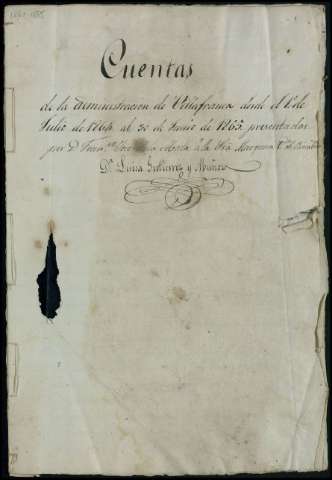 Cuentas
de la administracion de Villafranca desde el 1.º de
Julio de 1864 al 30 de Junio de 1865. presentadas
por D. Fran.co á la Sra. Marquesa V.da de
D.ª Luisa Gutierrez y